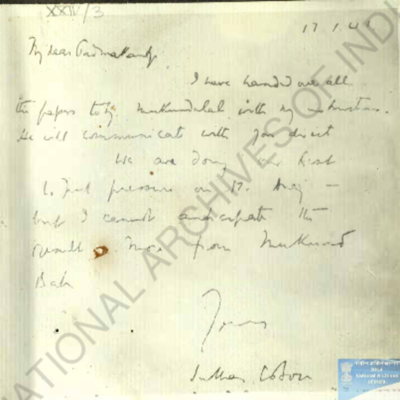 XXIV/3
17.1.41
My dear Padmakanta,
I have handed over all
the papers to Sj. Mukundalal with my instructions.
He will communicate with you direct
We are doing our best
to put pressure on
but I cannot anticipate the
result. More from Mukund
Babu
Yours
Subhas C Bose
NATIONAL ARCHIVES OF INDIA